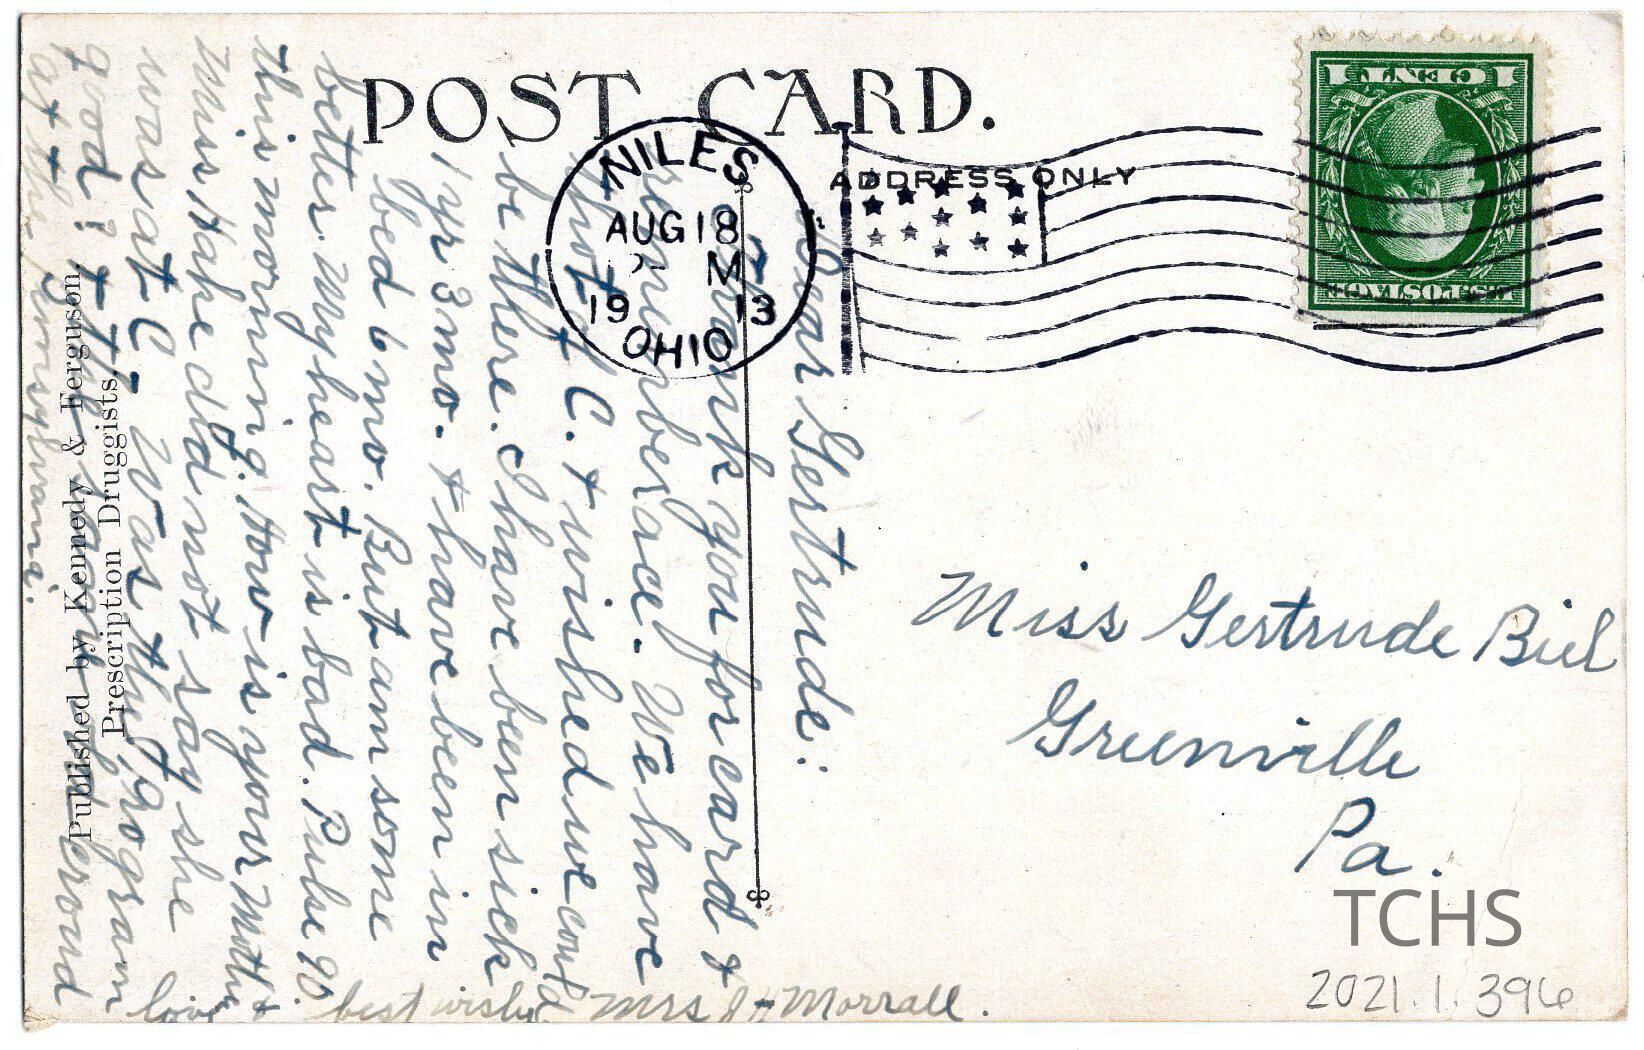 POST CARD.
ADDRESS ONLY
NILES
AUG 18
M
19 13
OHIO
U.S. POSTAGE
1 CENT 1
Dear Gertrude:
Thank you for card &
remembrance. We have
photo of C. & wished we could
be there. I have been sick
1 yr 3 mo. & have been in
bed 6 mo. But am some
better. My heart is bad. Pulse 90.
this morning. How is your Mother &
Miss Hake did not say she
was at C- Was the program
good? & the
at the Pennsylvania.
love & best wishes Mrs J H Morrall.
Published by Kennedy & Ferguson,
Prescription Druggists.
Miss Gertrude Biel
Greenville
Pa.
TCHS
2021.1.396